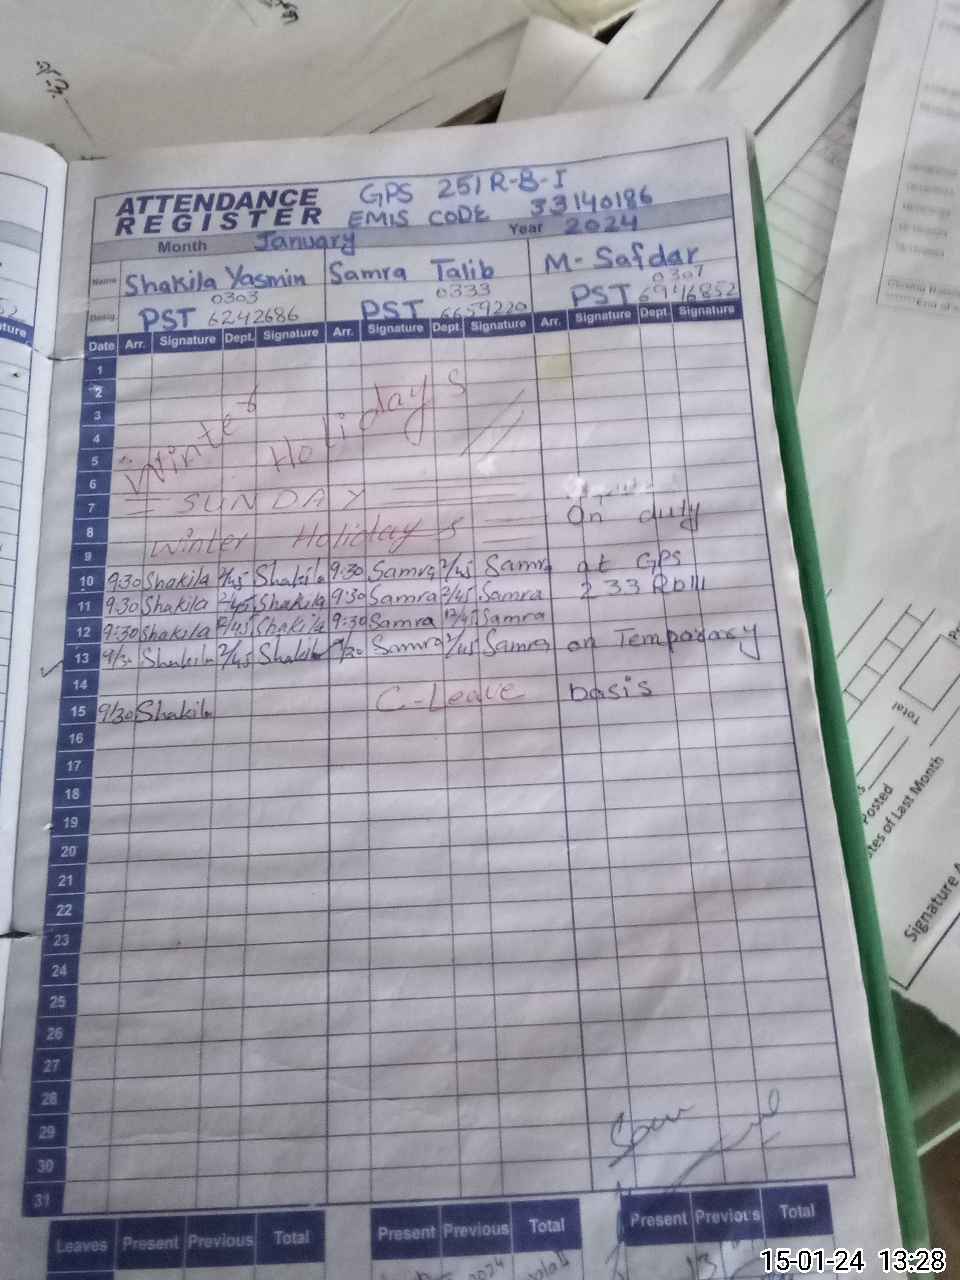 ATTENDANCE REGISTER
GPS 251 R-B-I
EMIS CODE 33140186
Month January Year 2024
Name Shakila Yasmin Samra Talib M. Safdar
0303 0333 0307
Desig. PST 6242686 PST 6659220 PST 6946852
Date Arr. Signature Dept. Signature Arr. Signature Dept. Signature Arr. Signature Dept. Signature
1
2
3
4
5
Winter Holidays
6
7 = SUNDAY
8 Winter Holidays On duty
9
10 9:30 Shakila 2/45 Shakila 9:30 Samra 2/45 Samra at GPS
11 9:30 Shakila 2/45 Shakila 9:30 Samra 2/45 Samra 233 RBIII
12 9:30 Shakila 12/45 Shakila 9:30 Samra 12/45 Samra
13 9/30 Shakila 2/45 Shakila 9/30 Samra 2/45 Samra on Temporary
14
15 9/30 Shakila C-Leave basis
16
17
18
19
20
21
22
23
24
25
26
27
28
29
30
31
Leaves Present Previous Total Present Previous Total Present Previous Total
Total
Posted
tes of Last Month
Signature
15-01-24 13:28